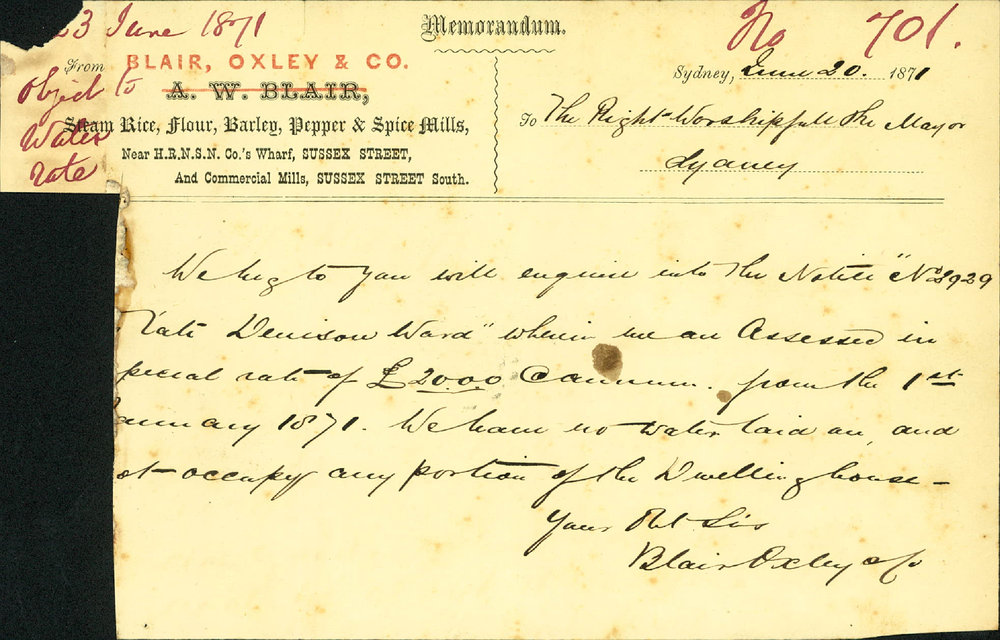 23 June 1871
Object to
Water
rate
Memorandum.
No 701.
From BLAIR, OXLEY & CO.
A. W. BLAIR,
Steam Rice, Flour, Barley, Pepper & Spice Mills,
Near H.R.N.S.N. Co.'s Wharf, SUSSEX STREET,
And Commercial Mills, SUSSEX STREET South.
Sydney, June 20. 1871
To The Right Worshipfull The Mayor
Sydney
We beg to you will enquire into the Notice "No 2929
Rate Denison Ward" wherein we are Assessed in
pecial rate of £20.0.0 annum. from the 1st
anuary 1871. We have no water laid on, and
ot occupy any portion of the Dwelling house —
Your Obt Sirs
Blair Oxley & Co